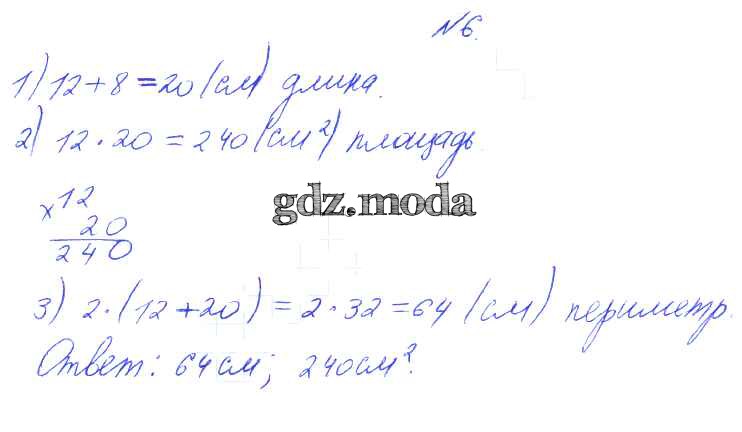 №6.
1) 12+8=20 (см) длина.
2) 12·20=240 (см²) площадь
×12
gdz.moda
20
240
3) 2·(12+20)=2·32=64 (см) периметр.
Ответ: 64см; 240см².